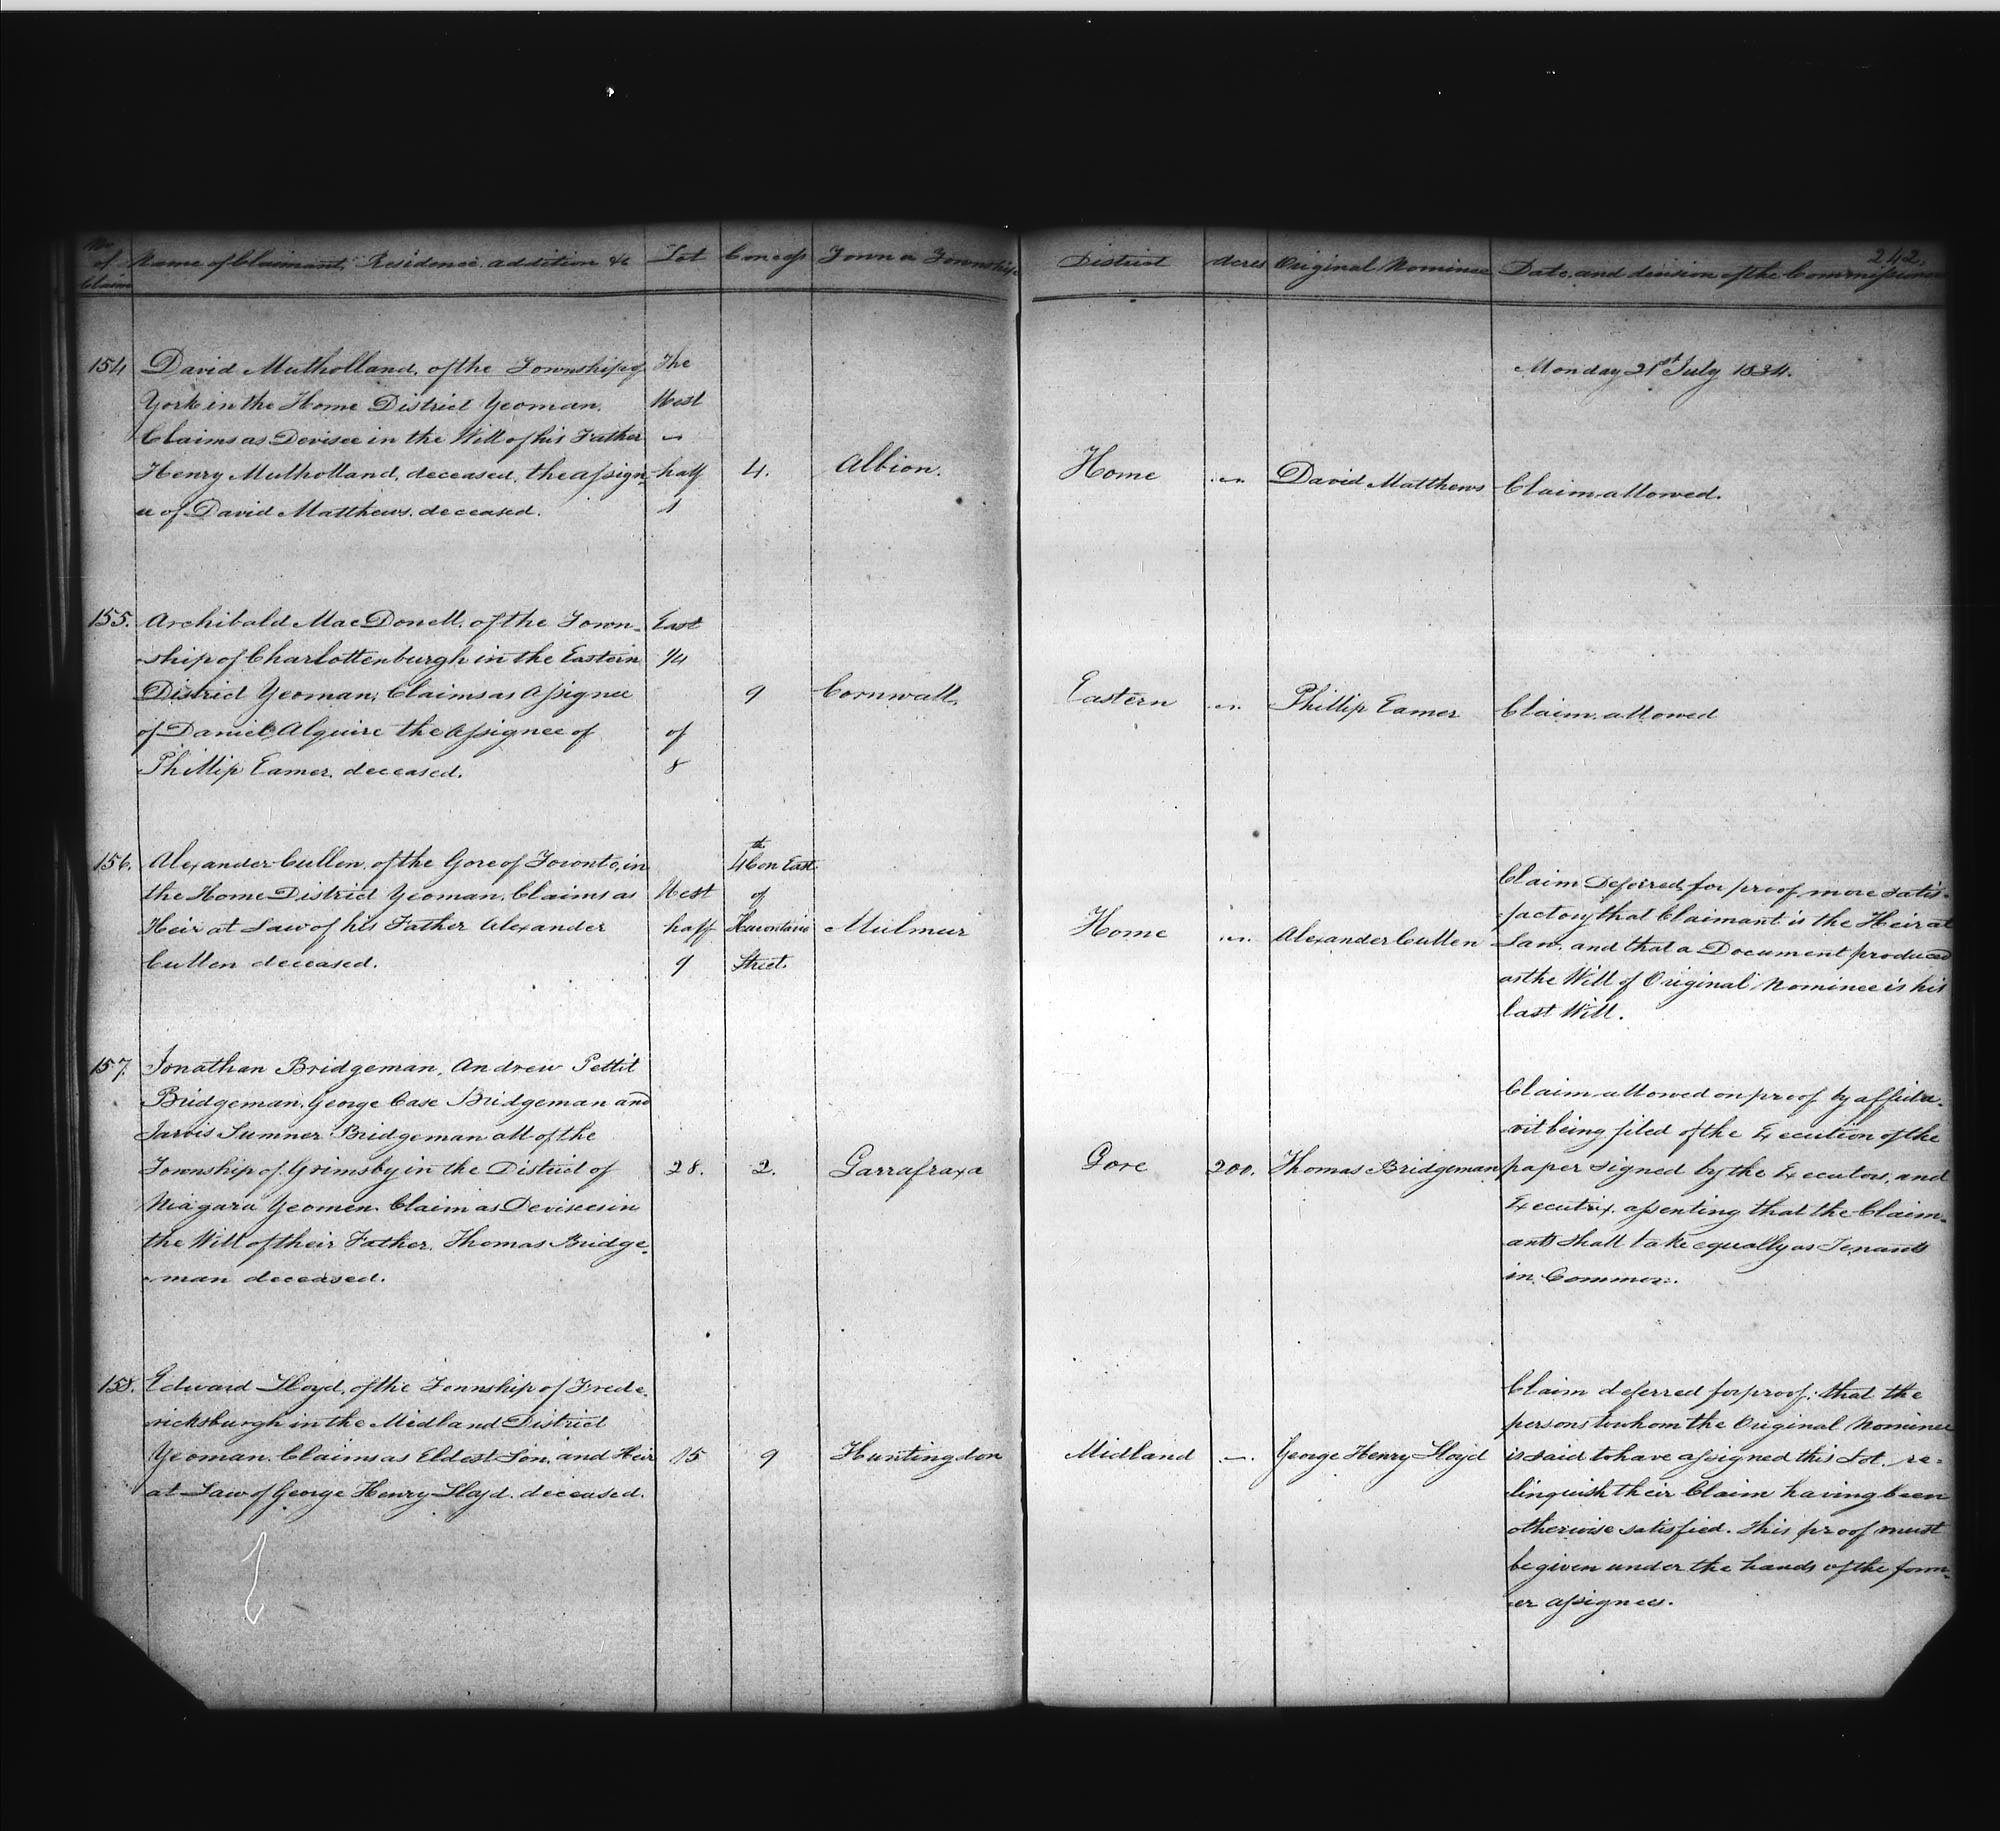 242.
No of Claim | Name of Claimant, Residence, addition &c | Lot | Concess | Town or Township | District | Acres | Original Nominee | Date, and decision of the Commissioners
Monday 21st July 1834.
154 David Mulholland, of the Township of
York in the Home District Yeoman.
Claims as Devisee in the Will of his Father
Henry Mulholland, deceased, the assign-
ee of David Matthews, deceased.
The
West
〃
half
1
4.
Albion.
Home
〃
David Matthews
Claim allowed.
155. Archibald MacDonell, of the Town-
ship of Charlottenburgh in the Eastern
District Yeoman, Claims as Assignee
of Daniel Alguire the Assignee of
Phillip Eamer, deceased.
East
1/4
of
8
9
Cornwall,
Eastern
〃
Phillip Eamer
Claim allowed
156. Alexander Cullen, of the Gore of Toronto, in
the Home District Yeoman, Claims as
Heir at Law of his Father Alexander
Cullen deceased.
West
half
9
4th Con East
of
Huorontario
Street
Mulmur
Home
〃
Alexander Cullen
Claim Deferred, for proof more satis-
factory that Claimant is the Heir at
Law. and that a Document produced
as the Will of Original Nominee is his
last Will.
157. Jonathan Bridgeman, Andrew Pettit
Bridgeman, George Case Bridgeman and
Jarvis Sumner Bridgeman all of the
Township of Grimsby in the District of
Niagara Yeomen. Claim as Devisees in
the Will of their Father, Thomas Bridge-
man deceased.
28.
2.
Garrafraxa
Gore
200.
Thomas Bridgeman
Claim allowed on proof by affida-
vit being filed of the Execution of the
paper signed by the Executors, and
Executrix assenting that the Claim-
ants shall take equally as Tenants
in Common.
158. Edward Lloyd, of the Township of Frede-
ricksburgh in the Midland District
Yeoman. Claims as Eldest Son, and Heir
at Law of George Henry Lloyd. deceased.
15
9
Huntingdon
Midland
〃
George Henry Lloyd
Claim deferred for proof, that the
persons to whom the Original Nominee
is said to have assigned this Lot. re-
linquish their Claim having been
otherwise satisfied. This proof must
be given under the hands of the form-
er assignees.